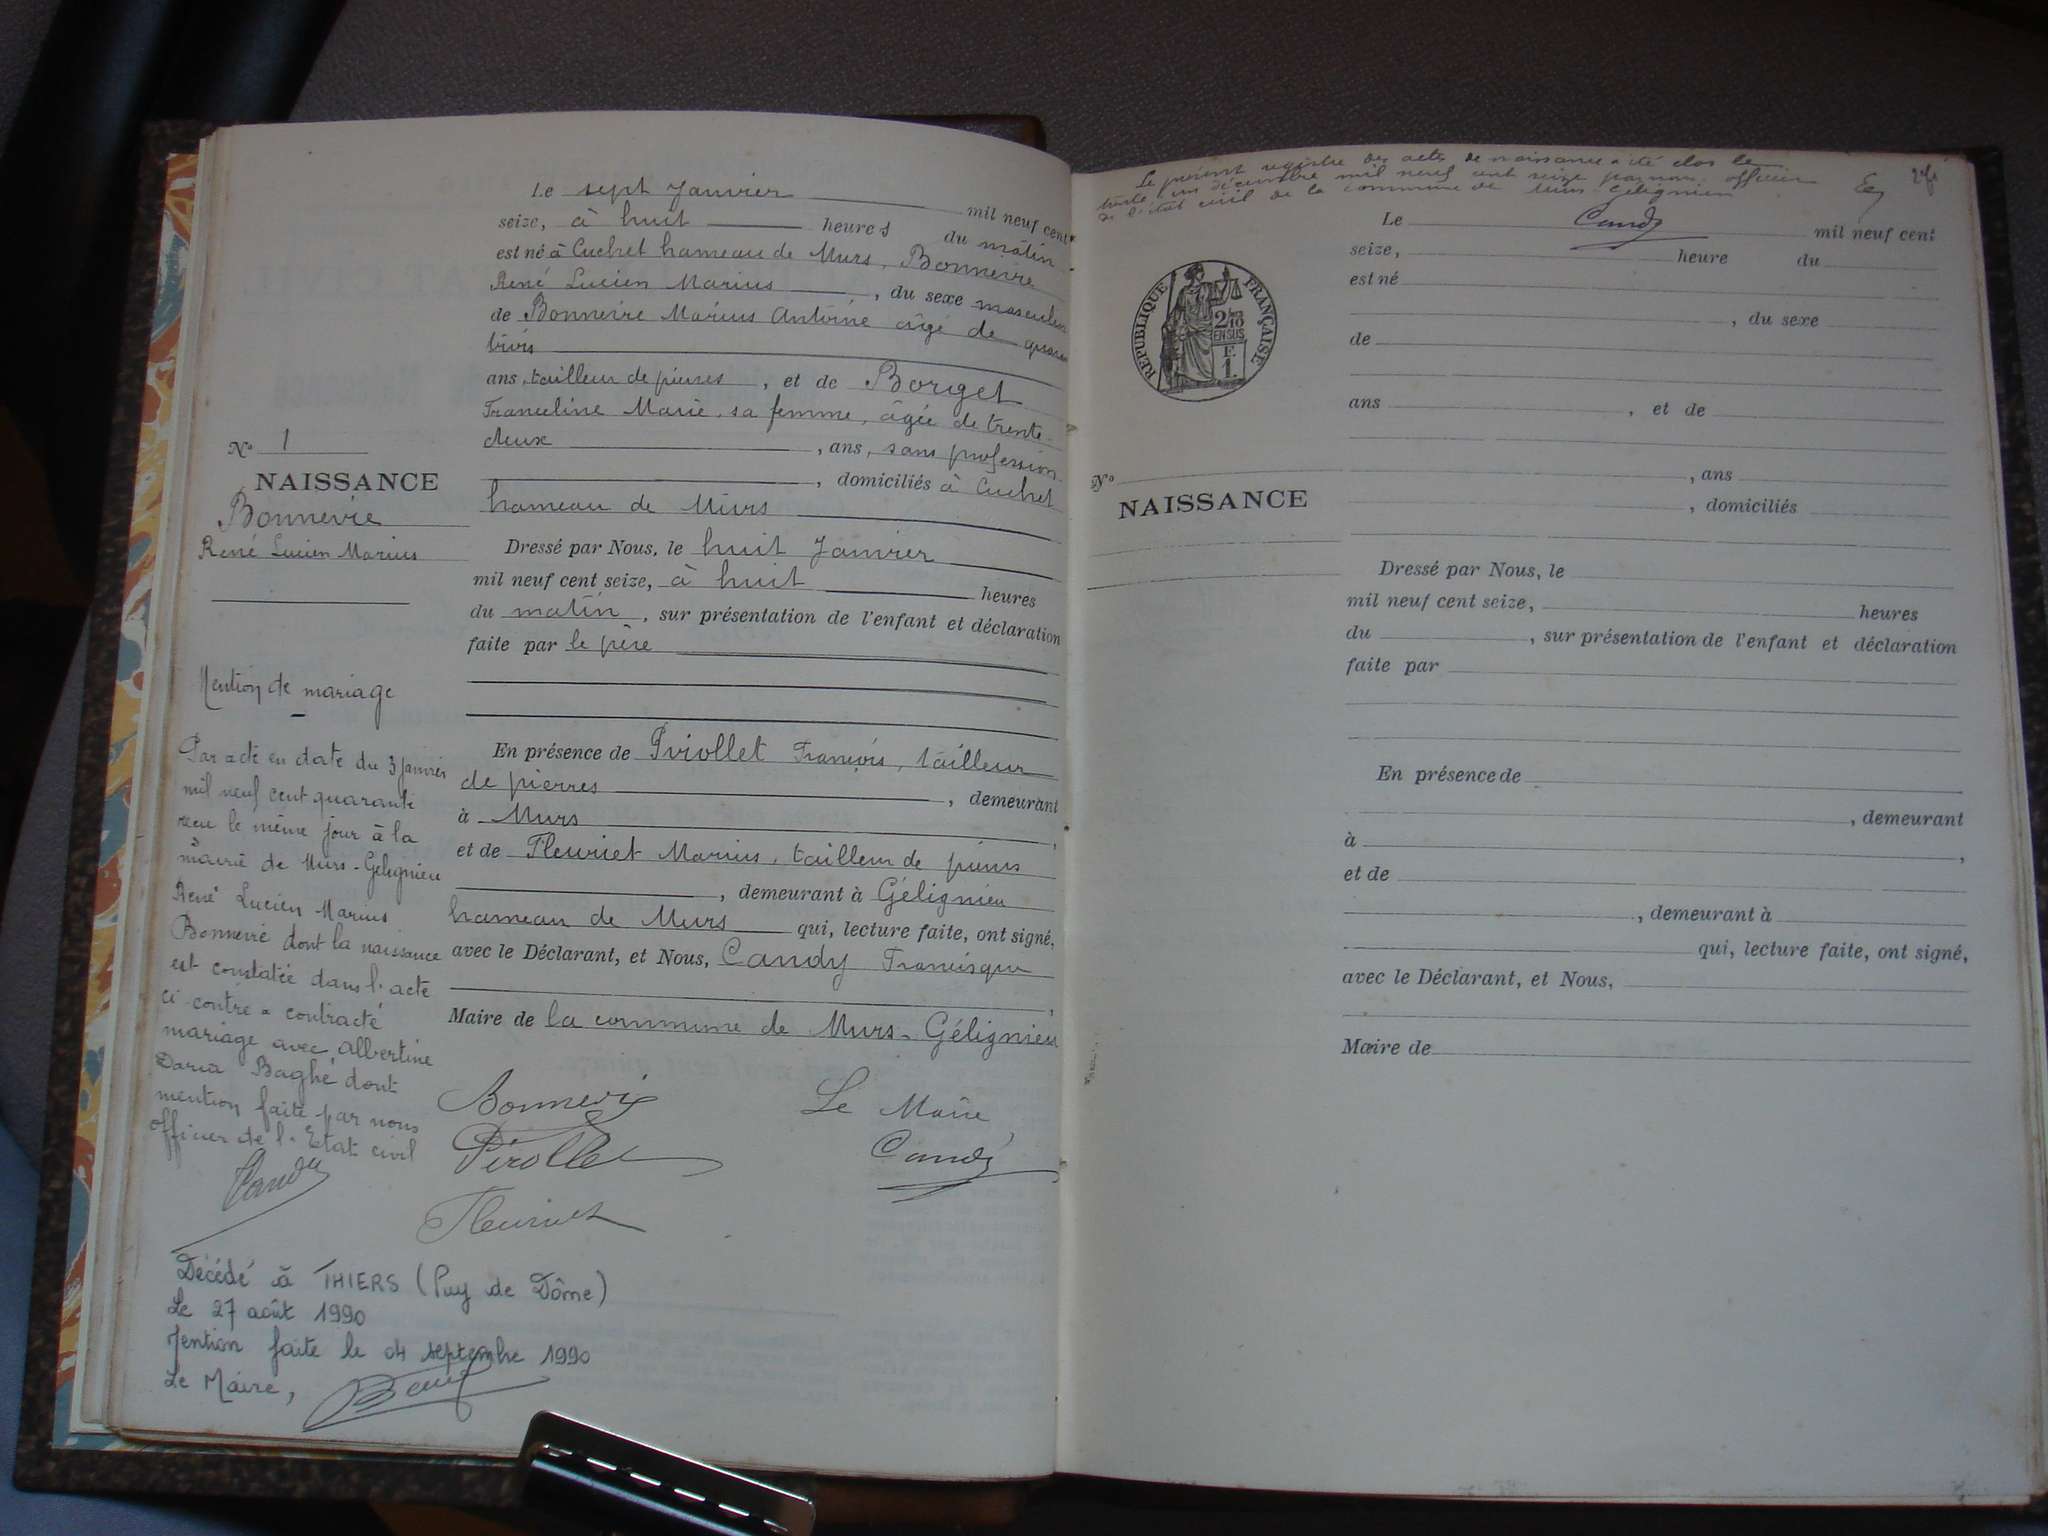 Le sept Janvier mil neuf cent
seize, à huit heures du matin
est né à Cuchet hameau de Murs, Bonnevie
René Lucien Marius, du sexe masculin
de Bonnevie Marius Antoine âgé de
trois
ans, tailleur de pierres, et de Borget
Franceline Marie, sa femme, âgée de trente-
deux, ans, sans profession
, domiciliés à Cuchet
hameau de Murs
Dressé par Nous, le huit Janvier
mil neuf cent seize, à huit heures
du matin, sur présentation de l'enfant et déclaration
faite par le père
En présence de François, tailleur
de pierres, demeurant
à Murs,
et de Fleuriet Marius, tailleur de pierres
, demeurant à Gélignieu
hameau de Murs qui, lecture faite, ont signé,
avec le Déclarant, et Nous, Candy Francisque
,
Maire de la commune de Murs-Gélignieu
Bonnevie
Le Maire,
Candy
Fleuriet
N° 1
NAISSANCE
Bonnevie
René Lucien Marius
Mention de mariage
Par acte en date du 3 janvier
mil neuf cent quarante
reçu le même jour à la
mairie de Murs-Gélignieu
René Lucien Marius
Bonnevie dont la naissance
est constatée dans l'acte
ci-contre a contracté
mariage avec Albertine
Daria Baghé dont
mention faite par nous
officier de l'Etat civil
Candy
Décédé à THIERS (Puy de Dôme)
Le 27 août 1990
Mention faite le 4 septembre 1990
Le Maire,
Le présent registre des actes de naissance a été clos le
trente un décembre mil neuf cent seize par nous officier
de l'état civil de la commune de Murs-Gélignieu
Candy
RÉPUBLIQUE FRANÇAISE
2/10
EN SUS
F.
1.
Le mil neuf cent
seize, heure du
est né
, du sexe
de
ans, et de
, ans
, domiciliés
N°
NAISSANCE
Dressé par Nous, le
mil neuf cent seize, heures
du, sur présentation de l'enfant et déclaration
faite par
En présence de
, demeurant
à,
et de
, demeurant à
qui, lecture faite, ont signé,
avec le Déclarant, et Nous,
Maire de